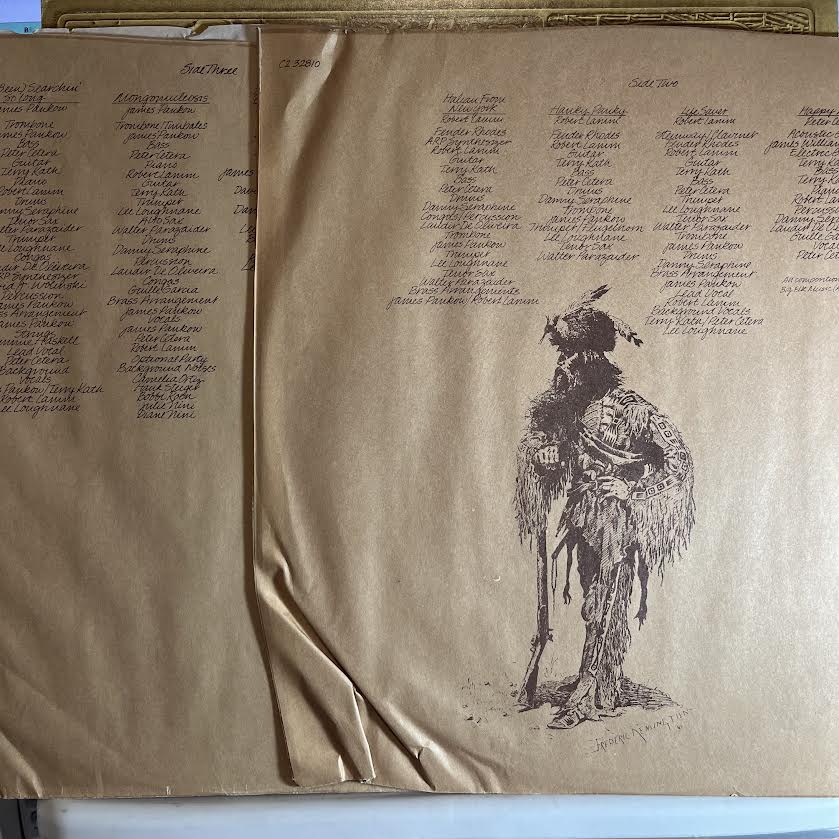 Side Three
(Been) Searchin'
So Long
James Pankow
Trombone
James Pankow
Bass
Peter Cetera
Guitar
Terry Kath
Piano
Robert Lamm
Drums
Danny Seraphine
Tenor Sax
Walter Parazaider
Trumpet
Lee Loughnane
Congas
Laudir De Oliveira
ARP Synthesizer
David J. Wolinski
Percussion
James Pankow
Brass Arrangement
James Pankow
Strings
Jimmie Haskell
Lead Vocal
Peter Cetera
Background
Vocals
James Pankow/Terry Kath
Robert Lamm
Lee Loughnane
Mongonucleosis
James Pankow
Trombone/Timbales
James Pankow
Bass
Peter Cetera
Piano
Robert Lamm
Guitar
Terry Kath
Trumpet
Lee Loughnane
Alto Sax
Walter Parazaider
Drums
Danny Seraphine
Percussion
Laudir De Oliveira
Congas
Guille Garcia
Brass Arrangement
James Pankow
Vocals
James Pankow
Peter Cetera
Robert Lamm
Optional Party
Background Noises
Camelia Ortiz
Bobbi Roen
Julie Nini
Diane Nini
James
C2 32810
Side Two
Italian From
New York
Robert Lamm
Fender Rhodes
ARP Synthesizer
Robert Lamm
Guitar
Terry Kath
Bass
Peter Cetera
Drums
Danny Seraphine
Congas/Percussion
Laudir De Oliveira
Trombone
James Pankow
Trumpet
Lee Loughnane
Tenor Sax
Walter Parazaider
Brass Arrangements
James Pankow/Robert Lamm
Hanky Panky
Robert Lamm
Fender Rhodes
Robert Lamm
Guitar
Terry Kath
Bass
Peter Cetera
Drums
Danny Seraphine
Trombone
James Pankow
Trumpet/Flugelhorn
Lee Loughnane
Tenor Sax
Walter Parazaider
Life Saver
Robert Lamm
Steinway/Clavinet
Fender Rhodes
Robert Lamm
Guitar
Terry Kath
Bass
Peter Cetera
Trumpet
Lee Loughnane
Tenor Sax
Walter Parazaider
Trombone
James Pankow
Drums
Danny Seraphine
Brass Arrangement
James Pankow
Lead Vocal
Robert Lamm
Background Vocals
Terry Kath/Peter Cetera
Lee Loughnane
Happy
Peter Ce
Acoustic
James William
Electric
Terry
Bass
Terry
Piano
Robert La
Percussion
Danny Ser
Laudir De
Guille
Vocals
Peter Cet
All composition
Big Elk Music
FREDERIC REMINGTON